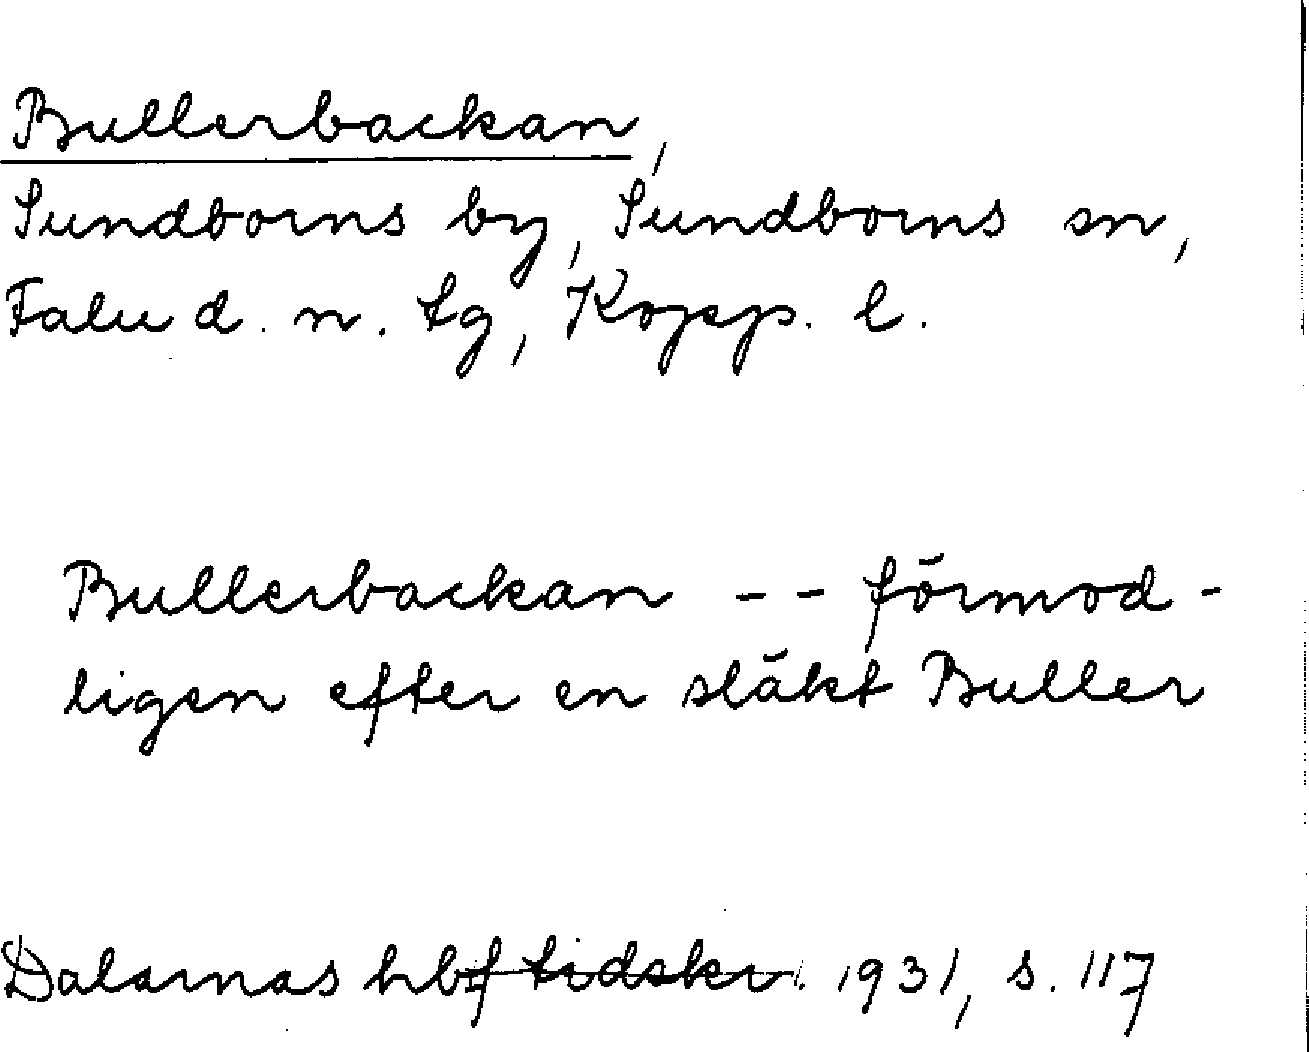 Bullerbackan,
Sundborns by, Sundborns sn,
Falu d. n. tg, Kopp. l.
Bullerbackan -- förmod-
ligen efter en släkt Buller
Dalarnas hbf tidskr. 1931, s. 117